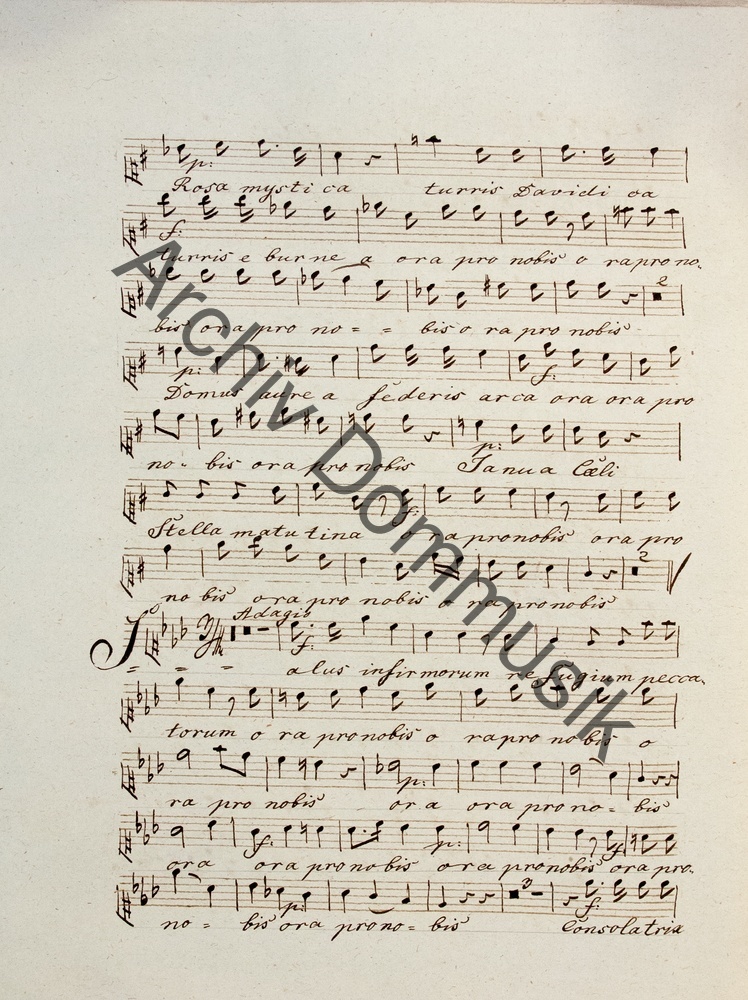 p:
Rosa mystica turris Davidi ca
f:
turris e burne a ora pro nobis o ra pro no-
2
bis ora pro no = = bis o ra pro nobis
p: f:
Domus aure a federis arca ora ora pro
p:
no - bis ora pro nobis Janua Cæli
f:
Stella matutina o ra pro nobis ora pro
2
no bis ora pro nobis o ra pro nobis
Adagio
f:
S = = = alus infirmorum refugium pecca-
torum o ra pro nobis o ra pro no bis o
p:
ra pro nobis ora ora pro no = bis
f: p: f
ora ora pro nobis ora pro nobis ora pro-
p: 3 f:
no = bis ora pro no = bis Consolatrix
Archiv Dommusik